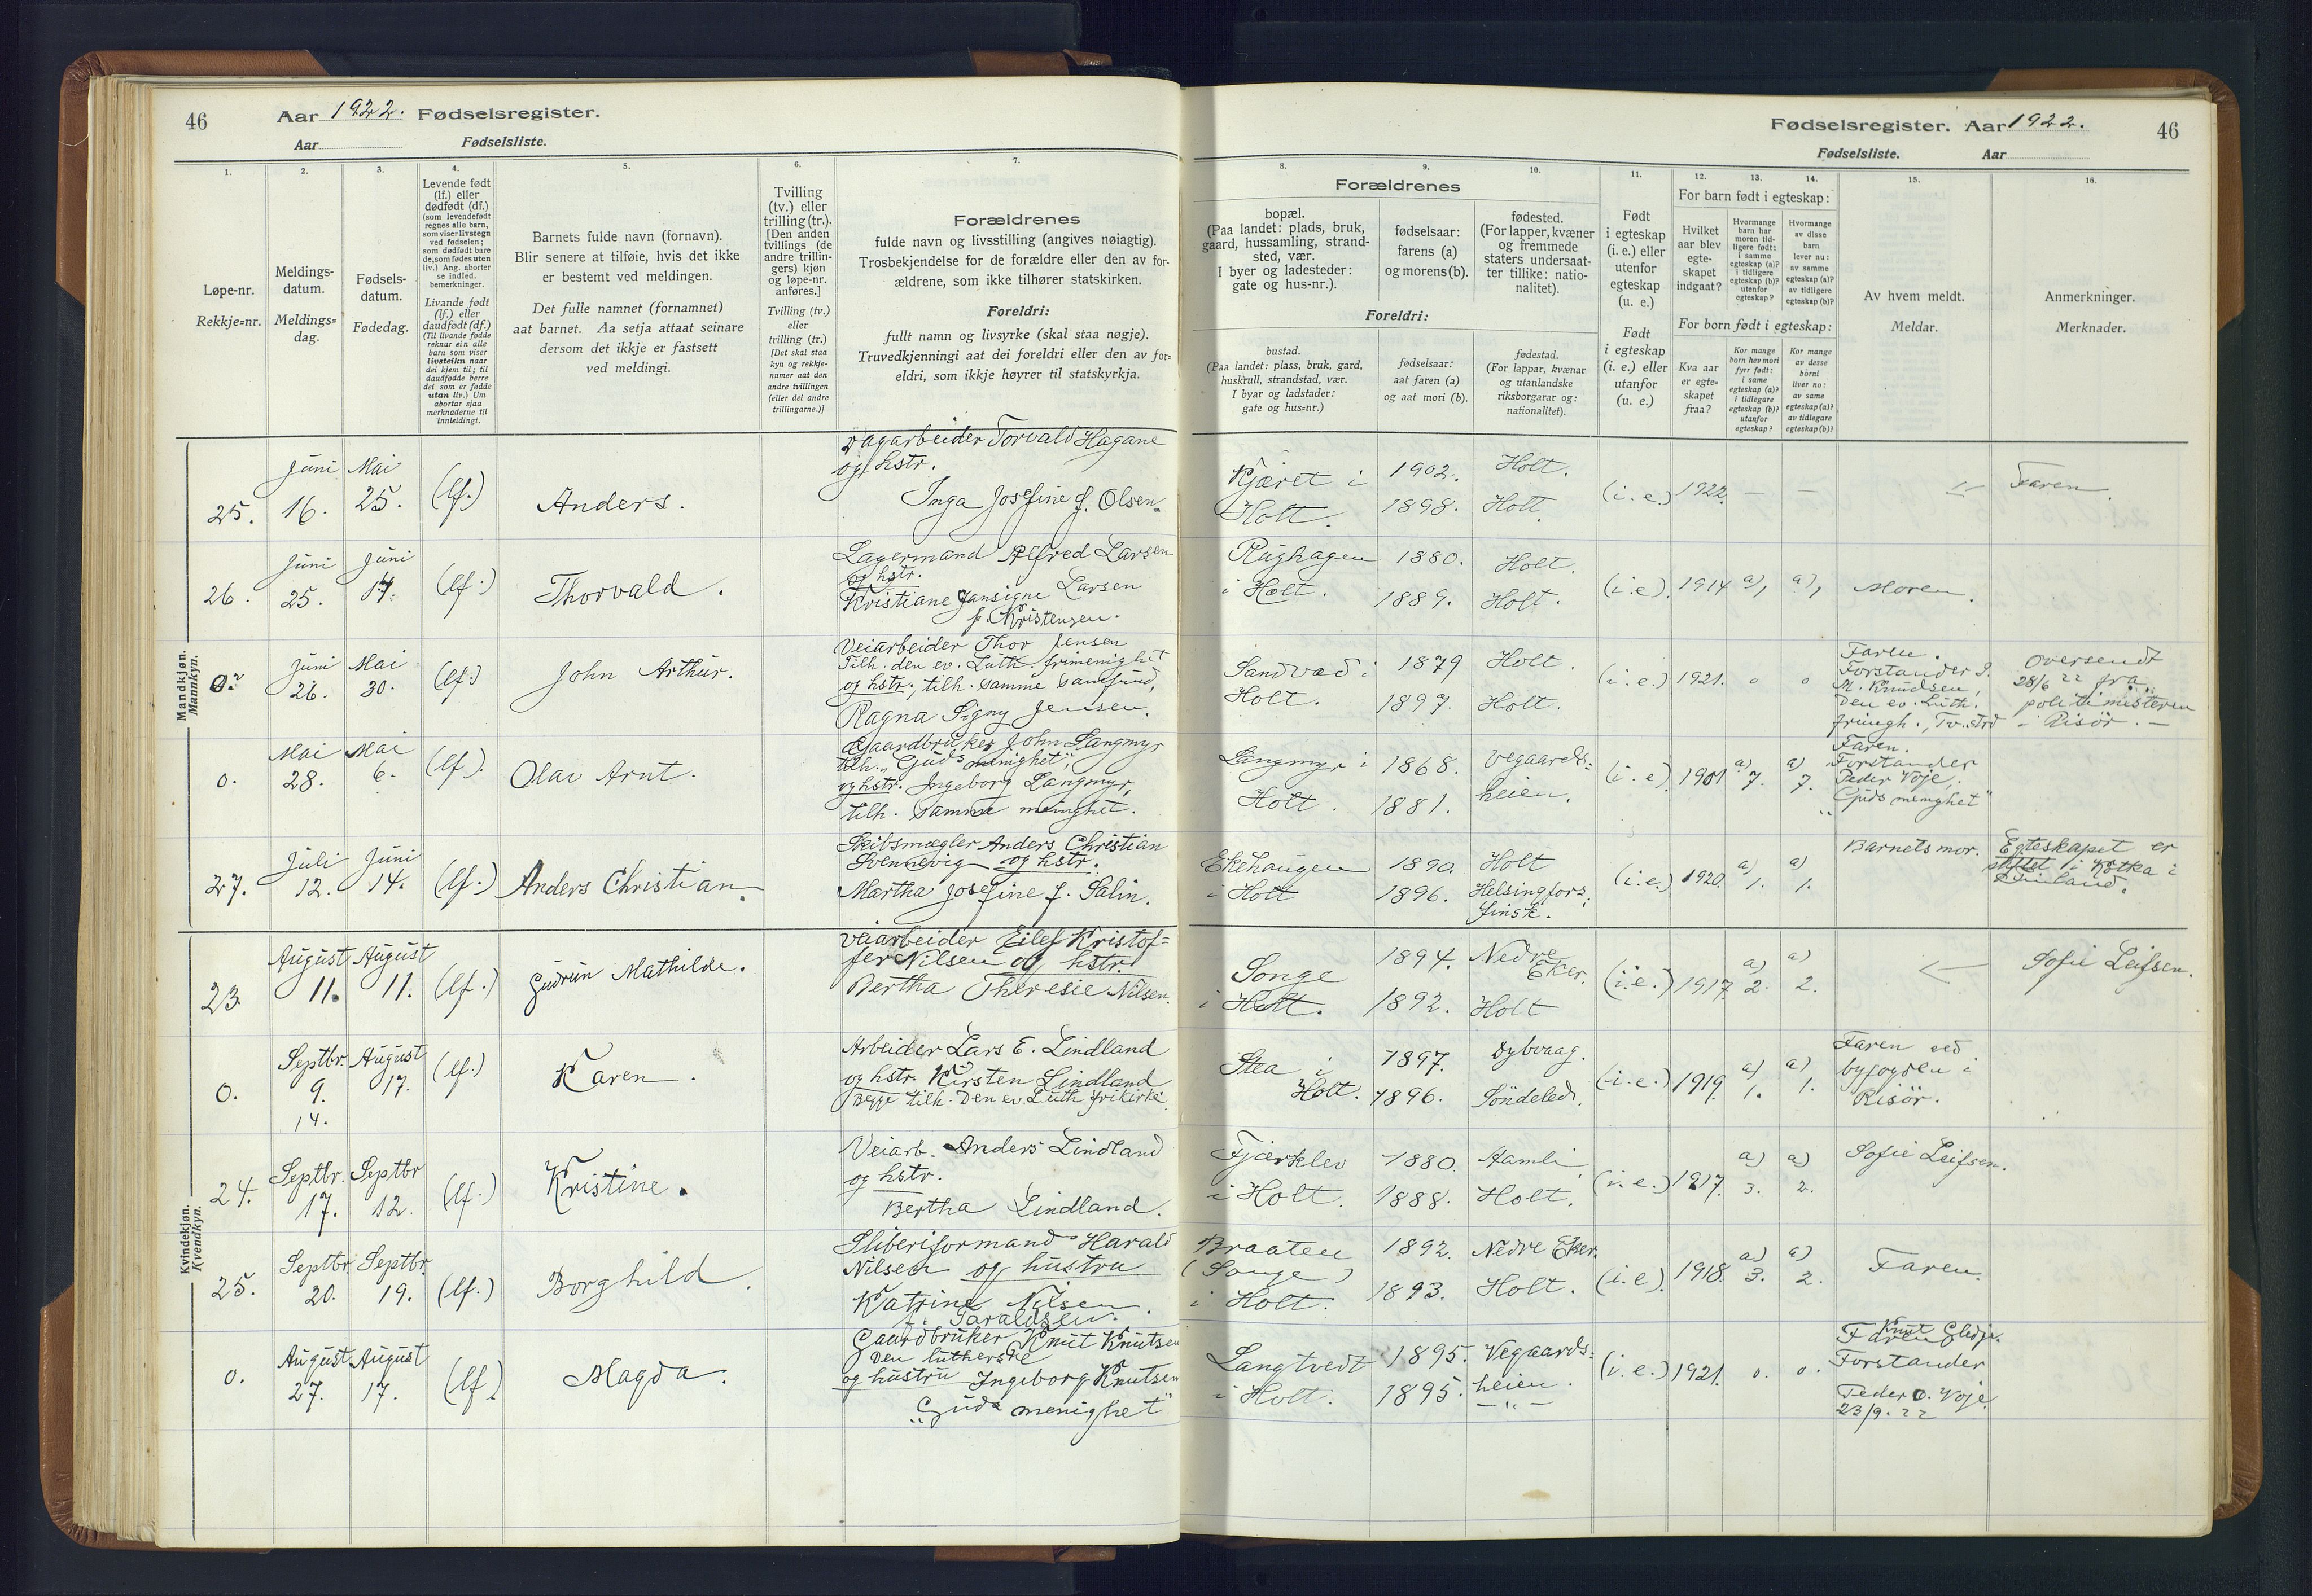 46
Aar 1922. Fødselsregister.
Aar Fødselsliste.
1.
2.
3.
4.
5.
6.
7.
Løpe-nr.
Rekkje=nr.
Meldings-
datum.
Meldings=
dag.
Fødsels-
datum.
Fødedag.
Levende født
(lf.) eller
dødfødt (df.)
(som levendefødt
regnes alle barn,
som viser livstegn
ved fødselen;
som dødfødt bare
de, som fødes uten
liv.) Ang. aborter
se indled.
bemerkninger.
Livande født
(lf.) eller
daudfødt (df.)
(Til livande fødde
reknar ein alle
barn som viser
livsteikn naar
dei kjem til; til
daudfødde berre
dei som er fødde
utan liv.) Um
abortar sjaa
merknaderne til
innleidingi.
Barnets fulde navn (fornavn).
Blir senere at tilføie, hvis det ikke
er bestemt ved meldingen.
Det fulle namnet (fornamnet)
aat barnet. Aa setja attaat seinare
dersom det ikkje er fastsett
ved meldingi.
Tvilling
(tv.) eller
trilling (tr.).
[Den anden
tvillings (de
andre trillin-
gers) kjøn
og løpe-nr.
anføres.]
Tvilling (tv.)
eller
trilling (tr.)
[Det skal staa
kyn og rekkje-
numer aat den
andre tvillingen
(eller dei andre
trillingarne.)]
Forældrenes
fulde navn og livsstilling (angives nøiagtig).
Trosbekjendelse for de forældre eller den av for-
ældrene, som ikke tilhører statskirken.
Foreldri:
fullt namn og livsyrke (skal staa nøgje).
Truvedkjenningi aat dei foreldri eller den av for=
eldri, som ikkje høyrer til statskyrkja.
Mandkjøn.
Mannkyn.
25.
Juni
16.
Mai
25.
(lf.)
Anders.
Dagarbeider Torvald Hagane
og hstr.
Inga Josefine f. Olsen.
26.
Juni
25.
Juni
17.
(lf.)
Thorvald.
Lagermand Alfred Larsen
og hstr.
Kristiane Jansigne Larsen
f. Kristensen.
0.
Juni
26.
Mai
30.
(lf.)
John Arthur.
Veiarbeider Thor Jensen
Tilh. den ev. Luth. frimenighet
og hstr., tilh. samme samfund,
Ragna Signy Jensen.
0.
Mai
28.
Mai
6.
(lf.)
Olav Arnt.
Gaardbruker John Langmyr
tilh. "Guds menighet",
og hstr. Ingeborg Langmyr,
tilh. samme menighet.
27.
Juli
12.
Juni
14.
(lf.)
Anders Christian.
Skibsmægler Anders Christian
Svennevig og hstr.
Martha Josefine f. Salin.
Kvindekjøn.
Kvendkyn.
23.
August
11.
August
11.
(lf.)
Gudrun Mathilde.
Veiarbeider Eilef Kristof=
fer Nilsen og hstr.
Bertha Theresie Nilsen.
0.
Septbr.
9.
14.
August
17.
(lf.)
Karen.
Arbeider Lars E. Lindland
og hstr. Kirsten Lindland
Begge tilh. Den ev. Luth frikirke.
24.
Septbr.
17.
Septbr
12.
(lf.)
Kristine.
Veiarb. Anders Lindland
og hstr.
Bertha Lindland.
25.
Septbr.
20.
Septbr.
19.
(lf.)
Borghild.
Sliberiformand Harald
Nilsen og hustru
Katrine Nilsen.
f. Taraldsen.
0.
August
27.
August
17.
(lf.)
Magda.
Gaardbruker Knut Knutsen
Den lutherske
og hustru Ingeborg Knutsen
"Guds menighet"
Fødselsregister. Aar 1922.
46
Fødselsliste. Aar
8.
9.
10.
11.
12.
13.
14.
15.
16.
Forældrenes
bopæl.
(Paa landet: plads, bruk,
gaard, hussamling, strand-
sted, vær.
I byer og ladesteder:
gate og hus-nr.).
fødselsaar:
farens (a)
og morens (b).
fødested.
(For lapper, kvæner
og fremmede
staters undersaat-
ter tillike: natio-
nalitet).
Foreldri:
bustad.
(Paa landet: plass, bruk, gard,
huskrull, strandstad, vær.
I byar og ladstader:
gate og hus=nr.)
fødselsaar:
aat faren (a)
og aat mori (b).
fødestad.
(For lappar, kvænar
og utanlandske
riksborgarar og:
nationalitet).
Født
i egteskap
(i. e.) eller
utenfor
egteskap
(u. e.)
Født
i egteskap
(i. e.) eller
utanfor
(u. e.)
For barn født i egteskap:
Hvilket
aar blev
egte-
skapet
indgaat?
Hvormange
barn har
moren tid-
ligere født:
i samme
egteskap (a)?
i tidligere
egteskap (b)?
utenfor
egteskap?
Hvormange
av disse
barn
lever nu:
av samme
egteskap (a)?
av tidligere
egteskap (b)?
For born født i egteskap:
Kva aar
er egte=
skapet
fraa?
Kor mange
born hev mori
fyrr født:
i same
egteskap (a)?
i tidlegare
egteskap (b)?
utanfor
egteskap?
Kor mange
av desse
borni
liver no:
av same
egteskap (a)?
av tidlegare
egteskap (b)?
Av hvem meldt.
Meldar.
Anmerkninger.
Merknader.
Kjæret i
Holt.
1902.
1898.
Holt.
Holt.
(i. e.)
1922.
—
—
Faren.
Rughagen
i Holt.
1880.
1889.
Holt.
Holt.
(i. e.)
1914
a),
a),
Moren.
Sandvad i
Holt.
1879
1897.
Holt.
Holt.
(i. e.)
1921.
0
0
Faren.
Forstander
M. Knudsen,
Den ev. Luth.
Oversendt
28/6 22 fra
politimesteren
i Risör. —
Langmyr i
Holt.
1868.
1881.
Vegaards=
heien.
(i. e.)
1901
a)
7.
a)
7.
Faren.
Forstander
Peder Voje,
"Guds menighet"
Ekehaugen
i Holt
1890.
1896.
Holt
Helsingfors.
finsk.
(i. e.)
1920.
a)
1.
a)
1.
Barnets mor.
Egteskapet er
stiftet i Kotka i
Finland.
Songe
i Holt.
1894.
1892.
Nedre
Eker.
Holt
(i. e.)
1917.
a)
2.
a)
2.
Sofie Leifsen.
Stea i
Holt.
1897.
1896.
Dybvaag.
Söndeled.
(i. e.)
1919.
a)
1.
a)
1.
Faren ved
byfogden i
Risör.
Fjærklev
i Holt.
1880.
1888.
Aamli
Holt.
(i. e.)
1917.
a)
3.
a)
2.
Sofie Leifsen.
Braaten
(Songe)
i Holt.
1892.
1893.
Nedre Eker.
Holt.
(i. e.)
1918.
a)
3.
a)
2.
Faren.
Langtvedt
i Holt.
1895.
1895.
Vegaards=
heien.
— " —
(i. e.)
1921.
0.
0.
Knut
Faren
Forstander
Peder O. Voje
23/9. 22